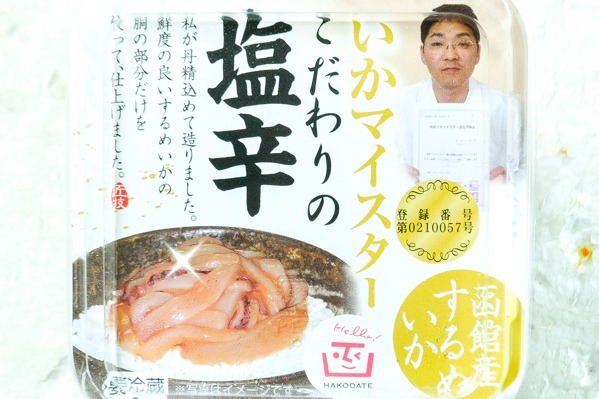 いかマイスター
こだわりの
塩辛
私が丹精込めて造りました。
鮮度の良いするめいかの
胴の部分だけを
使って、仕上げました。
匠技
登録番号
第0210057号
函館産
するめ
いか
Hello!
HAKODATE
要冷蔵
※写真はイメージです